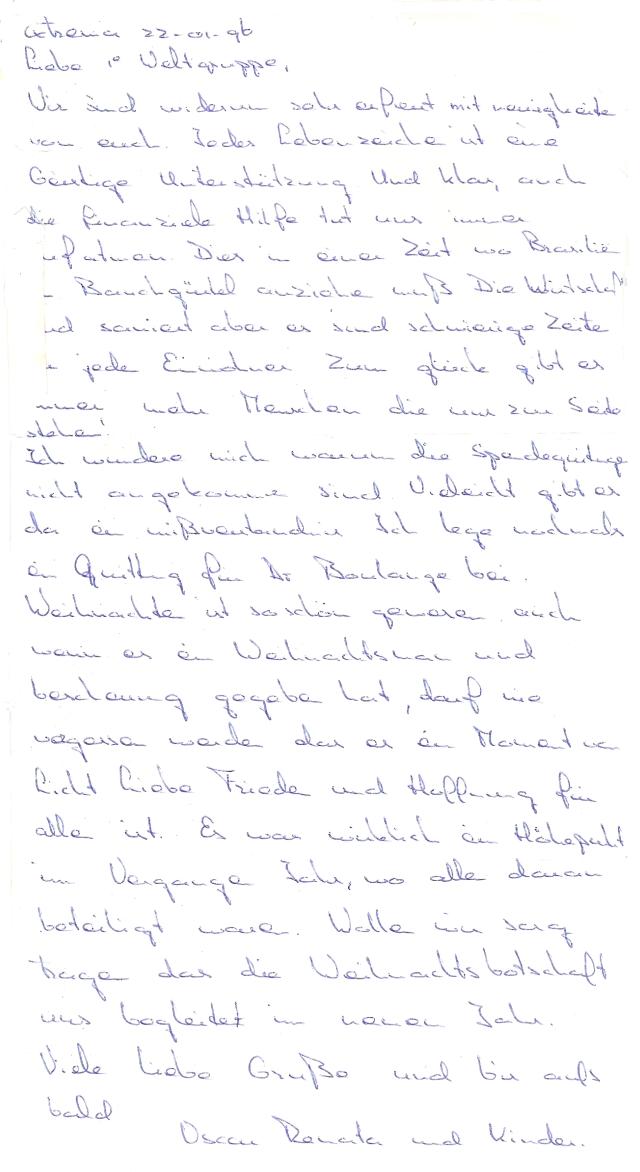 22-01-96
Liebe 1° Weltgruppe,
Wir sind wiederum sehr erfreut mit neuigkeite
von euch. Jedes Lebenszeiche ist eine
Geistige Unterstützung Und klar, auch
die finanziele Hilfe tut uns immer
ufatmen. Dies in einer Zeit wo Brasilie
- Bauchgürtel anziehe muß Die Wirtschaft
ud saniert aber es sind schwierige Zeite
jede Einwohner Zum glück gibt es
mmer mehr Menschen die uns zur Seite
stehen!
Ich wundere mich warum die Spendequittunge
nicht angekomme sind. Vieleicht gibt es
da ein mißverständnis Ich lege nochmals
ein Quittung für Dr Boulange bei.
Weihnachte ist so schön gewesen auch
wenn es ein Weihnachtsman und
bescherung gegebe hat, darf nie
vergesse werde das es ein Moment von
Licht Liebe Friede und Hoffnung für
alle ist. Es war wirklich ein Höhepukt
im Vergange Jahr, wo alle daran
beteiligt waren. Wolle wir sorg
trage das die Weihnachtsbotschaft
uns begleitet im neuen Jahr.
Viele liebe Grüße und bis aufs
bald
Oscar Renata und Kinder.